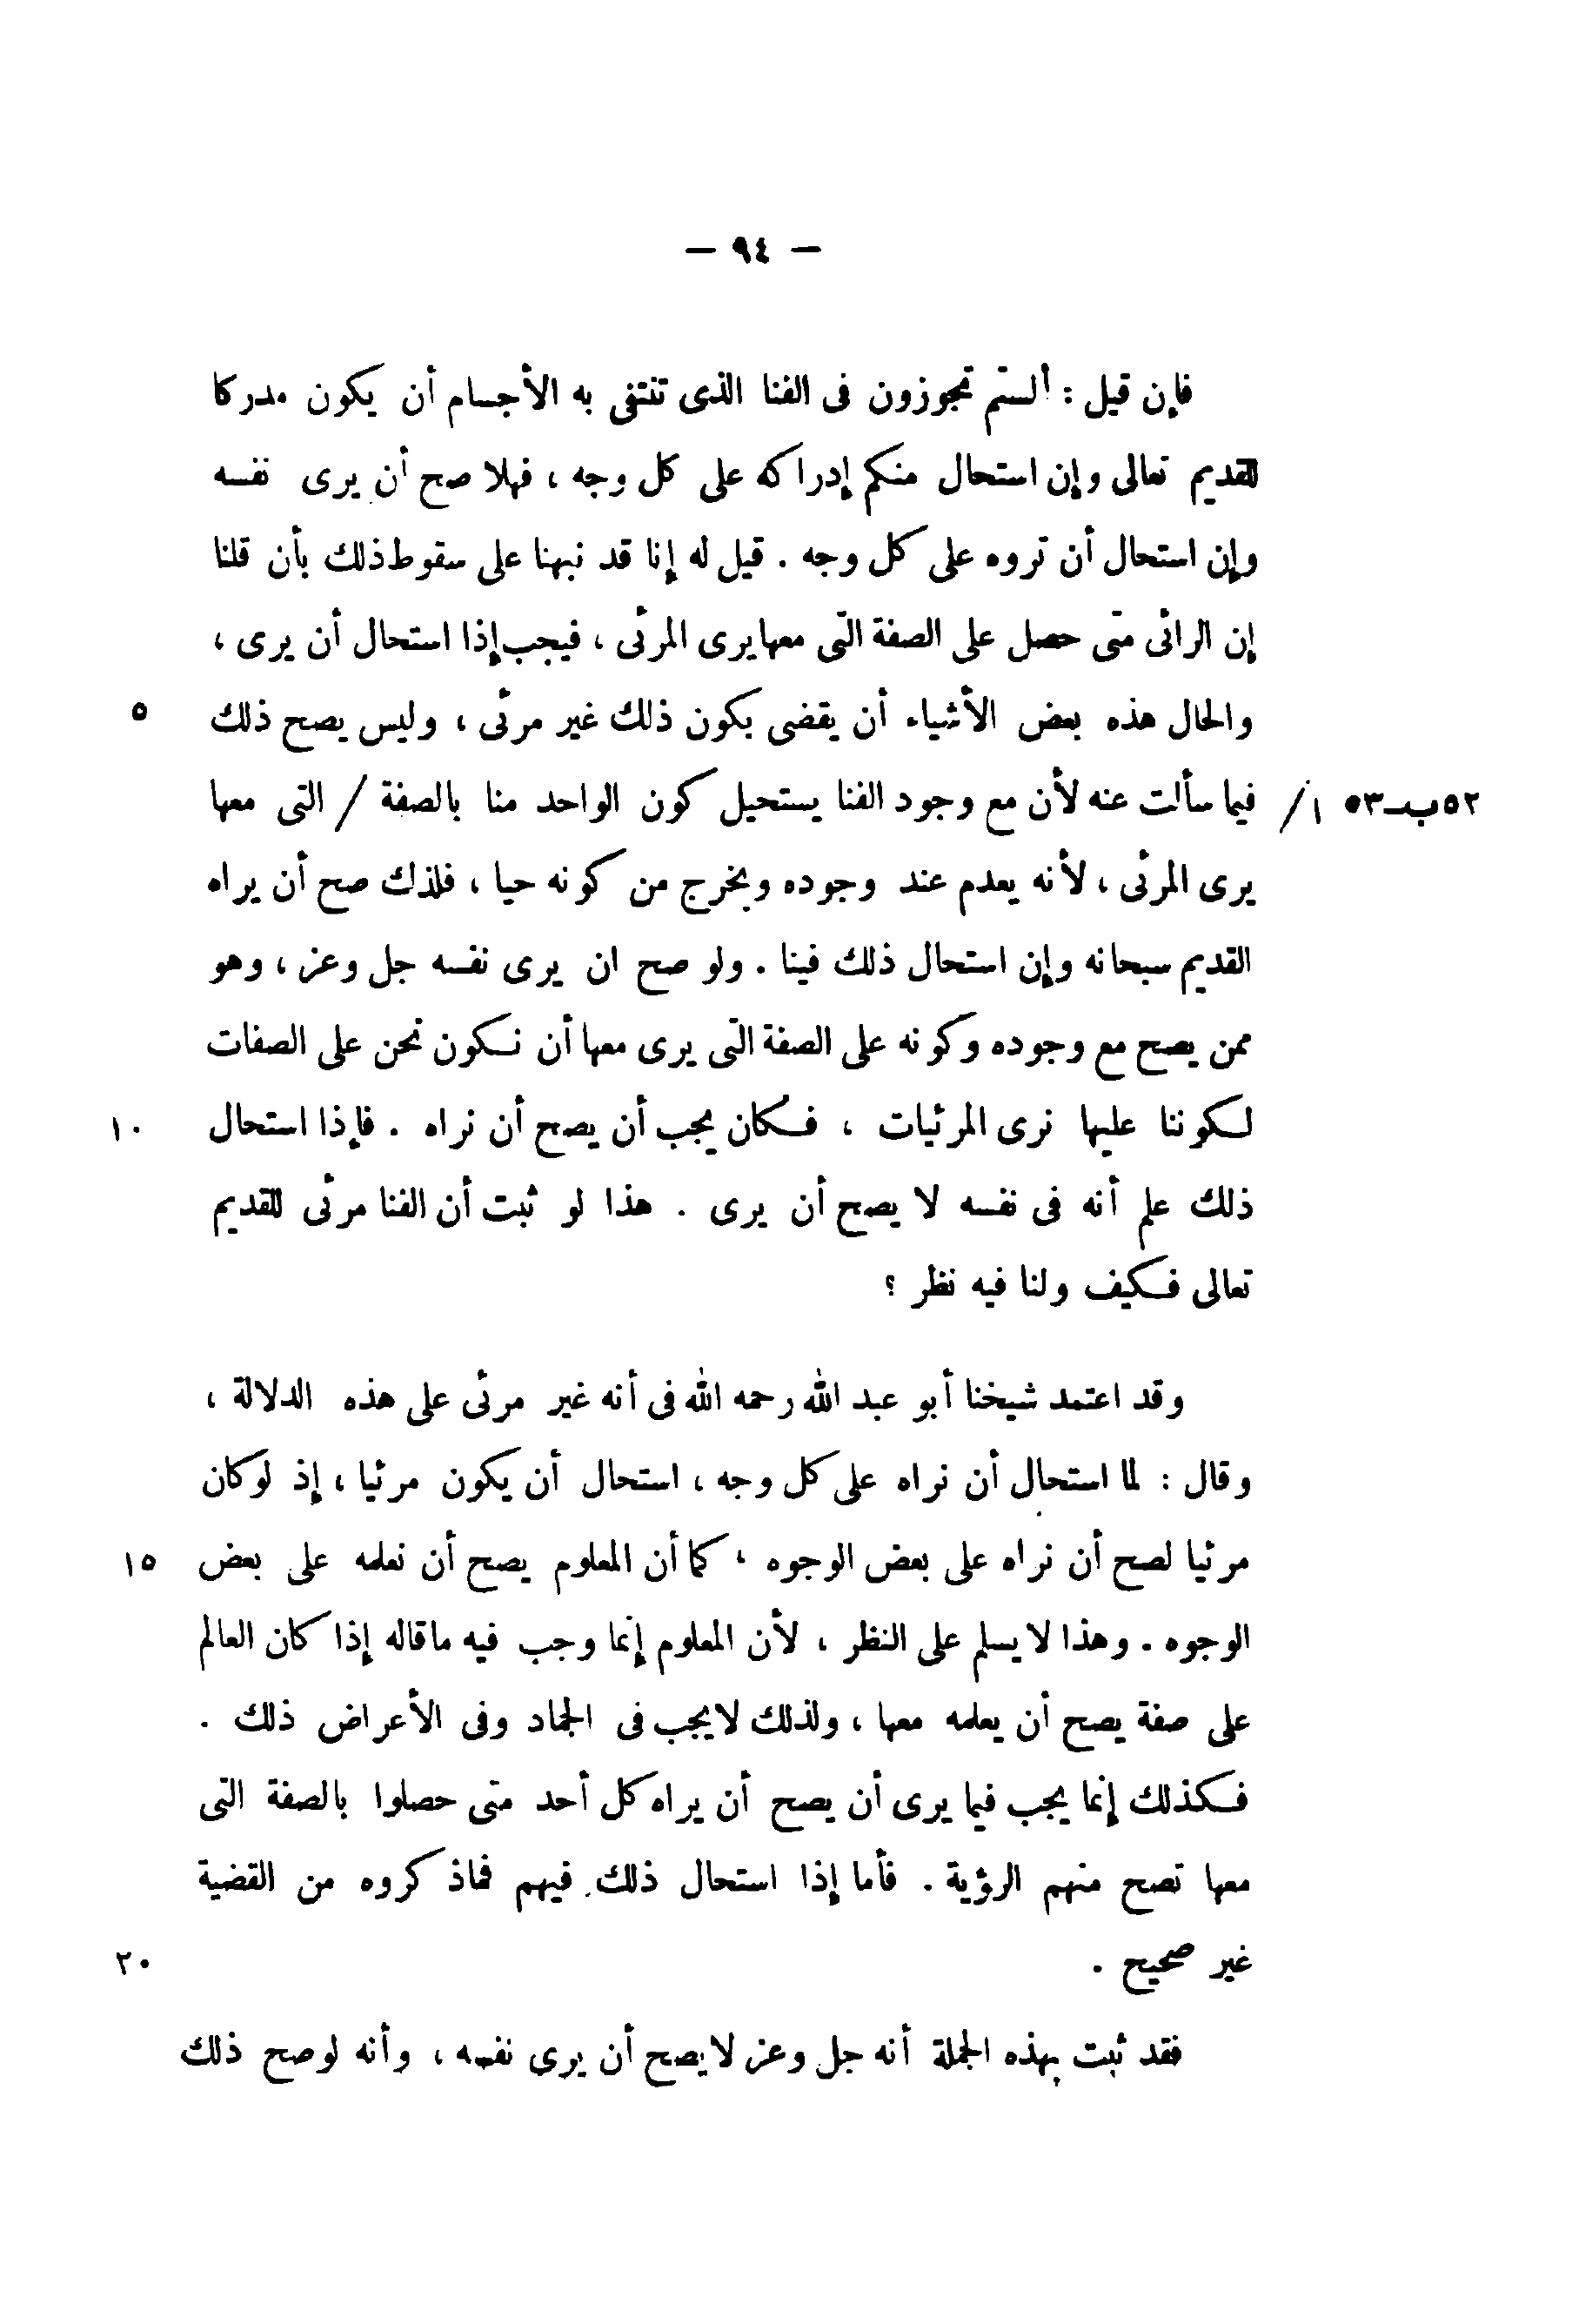 — ٩٤ —
فإن قيل : ألستم تجوزون فى الفنا الذى تنتفى به الأجسام أن يكون مدركا
للقديم تعالى وإن استحال منكم إدراكه على كل وجه ، فهلا صح أن يرى نفسه
وإن استحال أن تروه على كل وجه . قيل له إنا قد نبهنا على سقوط ذلك بأن قلنا
إن الرائى متى حصل على الصفة التى معها يرى المرئى ، فيجب إذا استحال أن يرى ،
والحال هذه بعض الأشياء أن يقضى بكون ذلك غير مرئى ، وليس يصح ذلك
٥
فيما سألت عنه لأن مع وجود الفنا يستحيل كون الواحد منا بالصفة / التى معها
٥٢ب–٥٣ ا/
يرى المرئى ، لأنه يعدم عند وجوده ويخرج من كونه حيا ، فلذك صح أن يراه
القديم سبحانه وإن استحال ذلك فينا . ولو صح ان يرى نفسه جل وعز ، وهو
ممن يصح مع وجوده وكونه على الصفة التى يرى معها أن نكون نحن على الصفات
لكوننا عليها نرى المرئيات ، فكان يجب أن يصح أن نراه . فإذا استحال
١٠
ذلك علم أنه فى نفسه لا يصح أن يرى . هذا لو ثبت أن الفنا مرئى للقديم
تعالى فكيف ولنا فيه نظر ؟
وقد اعتمد شيخنا أبو عبد الله رحمه الله فى أنه غير مرئى على هذه الدلالة ،
وقال : لما استحال أن نراه على كل وجه ، استحال أن يكون مرئيا ، إذ لوكان
مرئيا لصح أن نراه على بعض الوجوه ، كما أن المعلوم يصح أن نعلمه على بعض
١٥
الوجوه . وهذا لا يسلم على النظر ، لأن المعلوم إنما وجب فيه ماقاله إذا كان العالم
على صفة يصح أن يعلمه معها ، ولذلك لايجب فى الجماد وفى الأعراض ذلك .
فكذلك إنما يجب فيما يرى أن يصح أن يراه كل أحد متى حصلوا بالصفة التى
معها تصح منهم الرؤية . فأما إذا استحال ذلك فيهم فماذكروه من القضية
غير صحيح .
٢٠
فقد ثبت بهذه الجملة أنه جل وعز لايصح أن يرى نفسه ، وأنه لوصح ذلك